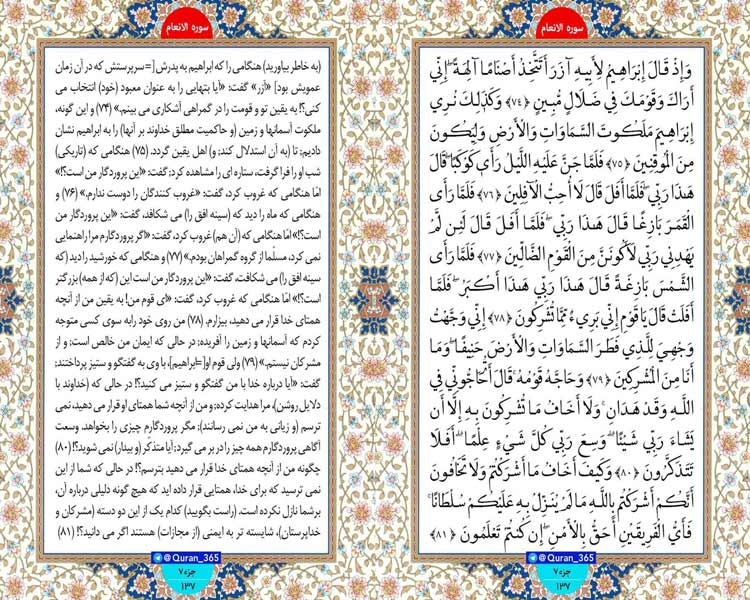 سوره الانعام
وَإِذْ قَالَ إِبْرَاهِيمُ لِأَبِيهِ آزَرَ أَتَتَّخِذُ أَصْنَامًا آلِهَةً ۖ إِنِّي
أَرَاكَ وَقَوْمَكَ فِي ضَلَالٍ مُبِينٍ ﴿۷۴﴾ وَكَذَٰلِكَ نُرِي
إِبْرَاهِيمَ مَلَكُوتَ السَّمَاوَاتِ وَالْأَرْضِ وَلِيَكُونَ
مِنَ الْمُوقِنِينَ ﴿۷۵﴾ فَلَمَّا جَنَّ عَلَيْهِ اللَّيْلُ رَأَىٰ كَوْكَبًا ۖ قَالَ
هَٰذَا رَبِّي ۖ فَلَمَّا أَفَلَ قَالَ لَا أُحِبُّ الْآفِلِينَ ﴿۷۶﴾ فَلَمَّا رَأَى
الْقَمَرَ بَازِغًا قَالَ هَٰذَا رَبِّي ۖ فَلَمَّا أَفَلَ قَالَ لَئِنْ لَمْ
يَهْدِنِي رَبِّي لَأَكُونَنَّ مِنَ الْقَوْمِ الضَّالِّينَ ﴿۷۷﴾ فَلَمَّا رَأَى
الشَّمْسَ بَازِغَةً قَالَ هَٰذَا رَبِّي هَٰذَا أَكْبَرُ ۖ فَلَمَّا
أَفَلَتْ قَالَ يَا قَوْمِ إِنِّي بَرِيءٌ مِمَّا تُشْرِكُونَ ﴿۷۸﴾ إِنِّي وَجَّهْتُ
وَجْهِيَ لِلَّذِي فَطَرَ السَّمَاوَاتِ وَالْأَرْضَ حَنِيفًا ۖ وَمَا
أَنَا مِنَ الْمُشْرِكِينَ ﴿۷۹﴾ وَحَاجَّهُ قَوْمُهُ ۚ قَالَ أَتُحَاجُّونِّي فِي
اللَّهِ وَقَدْ هَدَانِ ۚ وَلَا أَخَافُ مَا تُشْرِكُونَ بِهِ إِلَّا أَنْ
يَشَاءَ رَبِّي شَيْئًا ۗ وَسِعَ رَبِّي كُلَّ شَيْءٍ عِلْمًا ۗ أَفَلَا
تَتَذَكَّرُونَ ﴿۸۰﴾ وَكَيْفَ أَخَافُ مَا أَشْرَكْتُمْ وَلَا تَخَافُونَ
أَنَّكُمْ أَشْرَكْتُمْ بِاللَّهِ مَا لَمْ يُنَزِّلْ بِهِ عَلَيْكُمْ سُلْطَانًا ۚ
فَأَيُّ الْفَرِيقَيْنِ أَحَقُّ بِالْأَمْنِ ۖ إِنْ كُنْتُمْ تَعْلَمُونَ ﴿۸۱﴾
@Quran_365
جزء ۷
۱۳۷
سوره الانعام
(به خاطر بیاورید) هنگامی را که ابراهیم به پدرش [= سرپرستش که در آن زمان
عمویش بود] «آزر» گفت: «آیا بتهایی را به عنوان معبود (خود) انتخاب می
کنی؟! به یقین تو و قومت را در گمراهی آشکاری می بینم.» (۷۴) و این گونه،
ملکوت آسمانها و زمین (و حاکمیت مطلق خداوند بر آنها) را به ابراهیم نشان
دادیم؛ تا (به آن استدلال کند؛ و) اهل یقین گردد. (۷۵) هنگامی که (تاریکی)
شب او را فرا گرفت، ستاره ای را مشاهده کرد؛ گفت: «این پروردگار من است؟!»
امّا هنگامی که غروب کرد، گفت: «غروب کنندگان را دوست ندارم.» (۷۶) و
هنگامی که ماه را دید که (سینه افق را) می شکافد، گفت: «این پروردگار من
است؟!» امّا هنگامی که (آن هم) غروب کرد، گفت: «اگر پروردگارم مرا راهنمایی
نمی کرد، مسلّما از گروه گمراهان بودم.» (۷۷) و هنگامی که خورشید را دید (که
سینه افق را) می شکافت، گفت: «این پروردگار من است این (که از همه) بزرگتر
است؟!» امّا هنگامی که غروب کرد، گفت: «ای قوم من! به یقین من از آنچه
همتای خدا قرار می دهید، بیزارم. (۷۸) من روی خود را به سوی کسی متوجه
کردم که آسمانها و زمین را آفریده؛ در حالی که ایمان من خالص است، و از
مشرکان نیستم.» (۷۹) ولی قوم او [=ابراهیم]، با وی به گفتگو و ستیز پرداختند؛
گفت: «آیا درباره خدا با من گفتگو و ستیز می کنید؟! در حالی که (خداوند با
دلایل روشن)، مرا هدایت کرده؛ و من از آنچه شما همتای او قرار می دهید، نمی
ترسم (و زیانی به من نمی رسانند)؛ مگر پروردگارم چیزی را بخواهد. وسعت
آگاهی پروردگارم همه چیز را در بر می گیرد؛ آیا متذکّر (و بیدار) نمی شوید؟! (۸۰)
چگونه من از آنچه همتای خدا قرار می دهید بترسم؟! در حالی که شما از این
نمی ترسید که برای خدا، همتایی قرار داده اید که هیچ گونه دلیلی درباره آن،
برشما نازل نکرده است. (راست بگویید) کدام یک از این دو دسته (مشرکان و
خداپرستان)، شایسته تر به ایمنی (از مجازات) هستند اگر می دانید؟! (۸۱)
@Quran_365
جزء ۷
۱۳۷